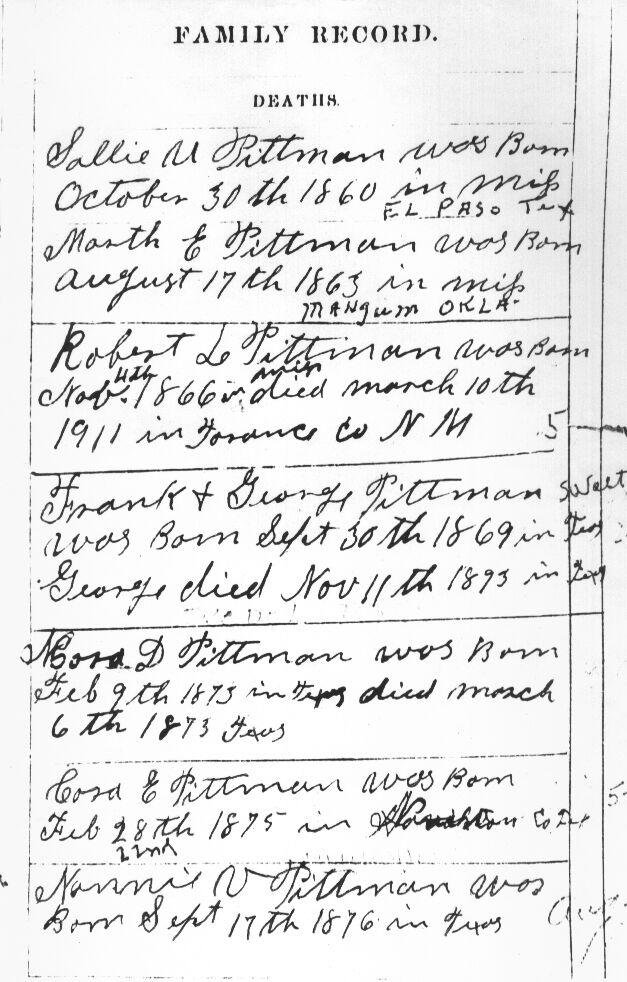 FAMILY RECORD.
DEATHS.
Sallie U Pittman was Born
October 30th 1860 in miss
EL PASO Tex
Marth E Pittman was Born
august 17th 1863 in miss
MANgum OKLA-
Robert L Pittman was Born
miss
4th
Nov. 1866 in died march 10th
1911 in Torance Co N M
5
Frank & George Pittman
was Born Sept 30th 1869 in Texas
George died Nov 11th 1893 in Texas
D Pittman was Born
Feb 9th 1873 in Texas died march
6th 1873 Texas
Cora E Pittman was Born
Feb 28th 1875 in Houston Co Tex
22nd
5
Nannie V Pittman was
Born Sept 17th 1876 in Texas